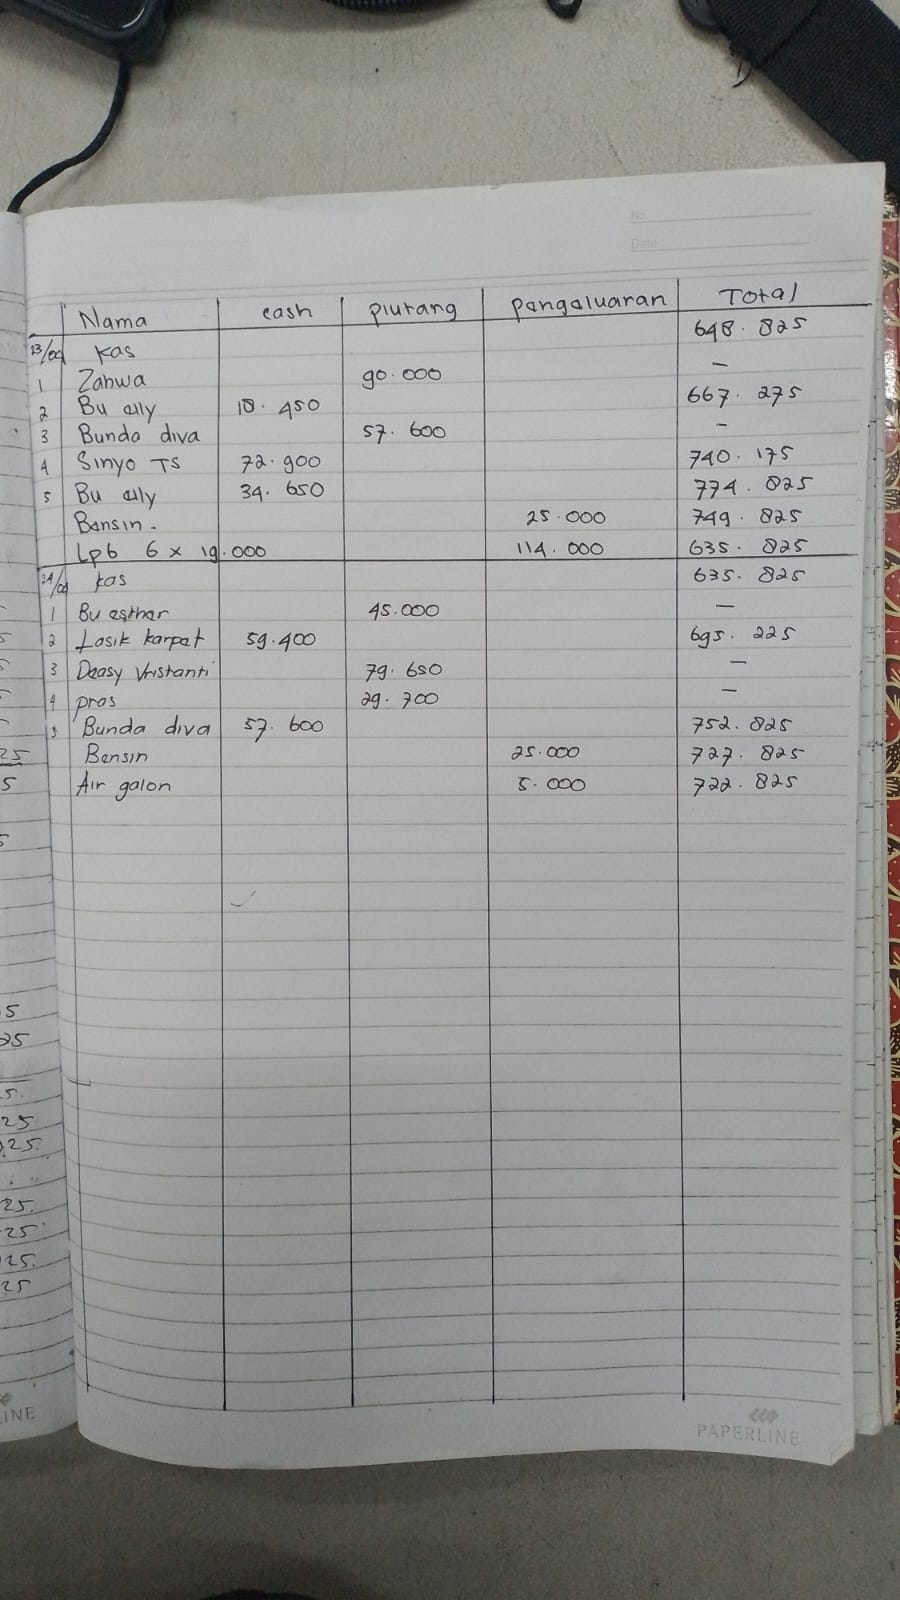 No.
Date :
Nama cash piutang pengeluaran Total
23/09 kas 648.825
1 Zahwa 90.000 —
2 Bu elly 18.450 667.275
3 Bunda diva 57.600 -
4 Sinyo TS 72.900 740.175
5 Bu elly 34.650 774.825
Bensin. 25.000 749.825
Lpb 6 x 19.000 114.000 635.825
24/09 kas 635.825
1 Bu esther 45.000 —
2 Losik karpet 59.400 695.225
3 Deasy Vristanti 79.650 —
4 pras 29.700 —
5 Bunda diva 57.600 752.825
Bensin 25.000 727.825
Air galon 5.000 722.825
PAPERLINE